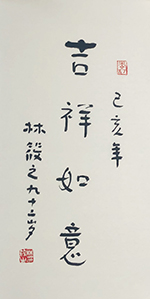 己亥年
吉祥如意
林筱之九十二岁